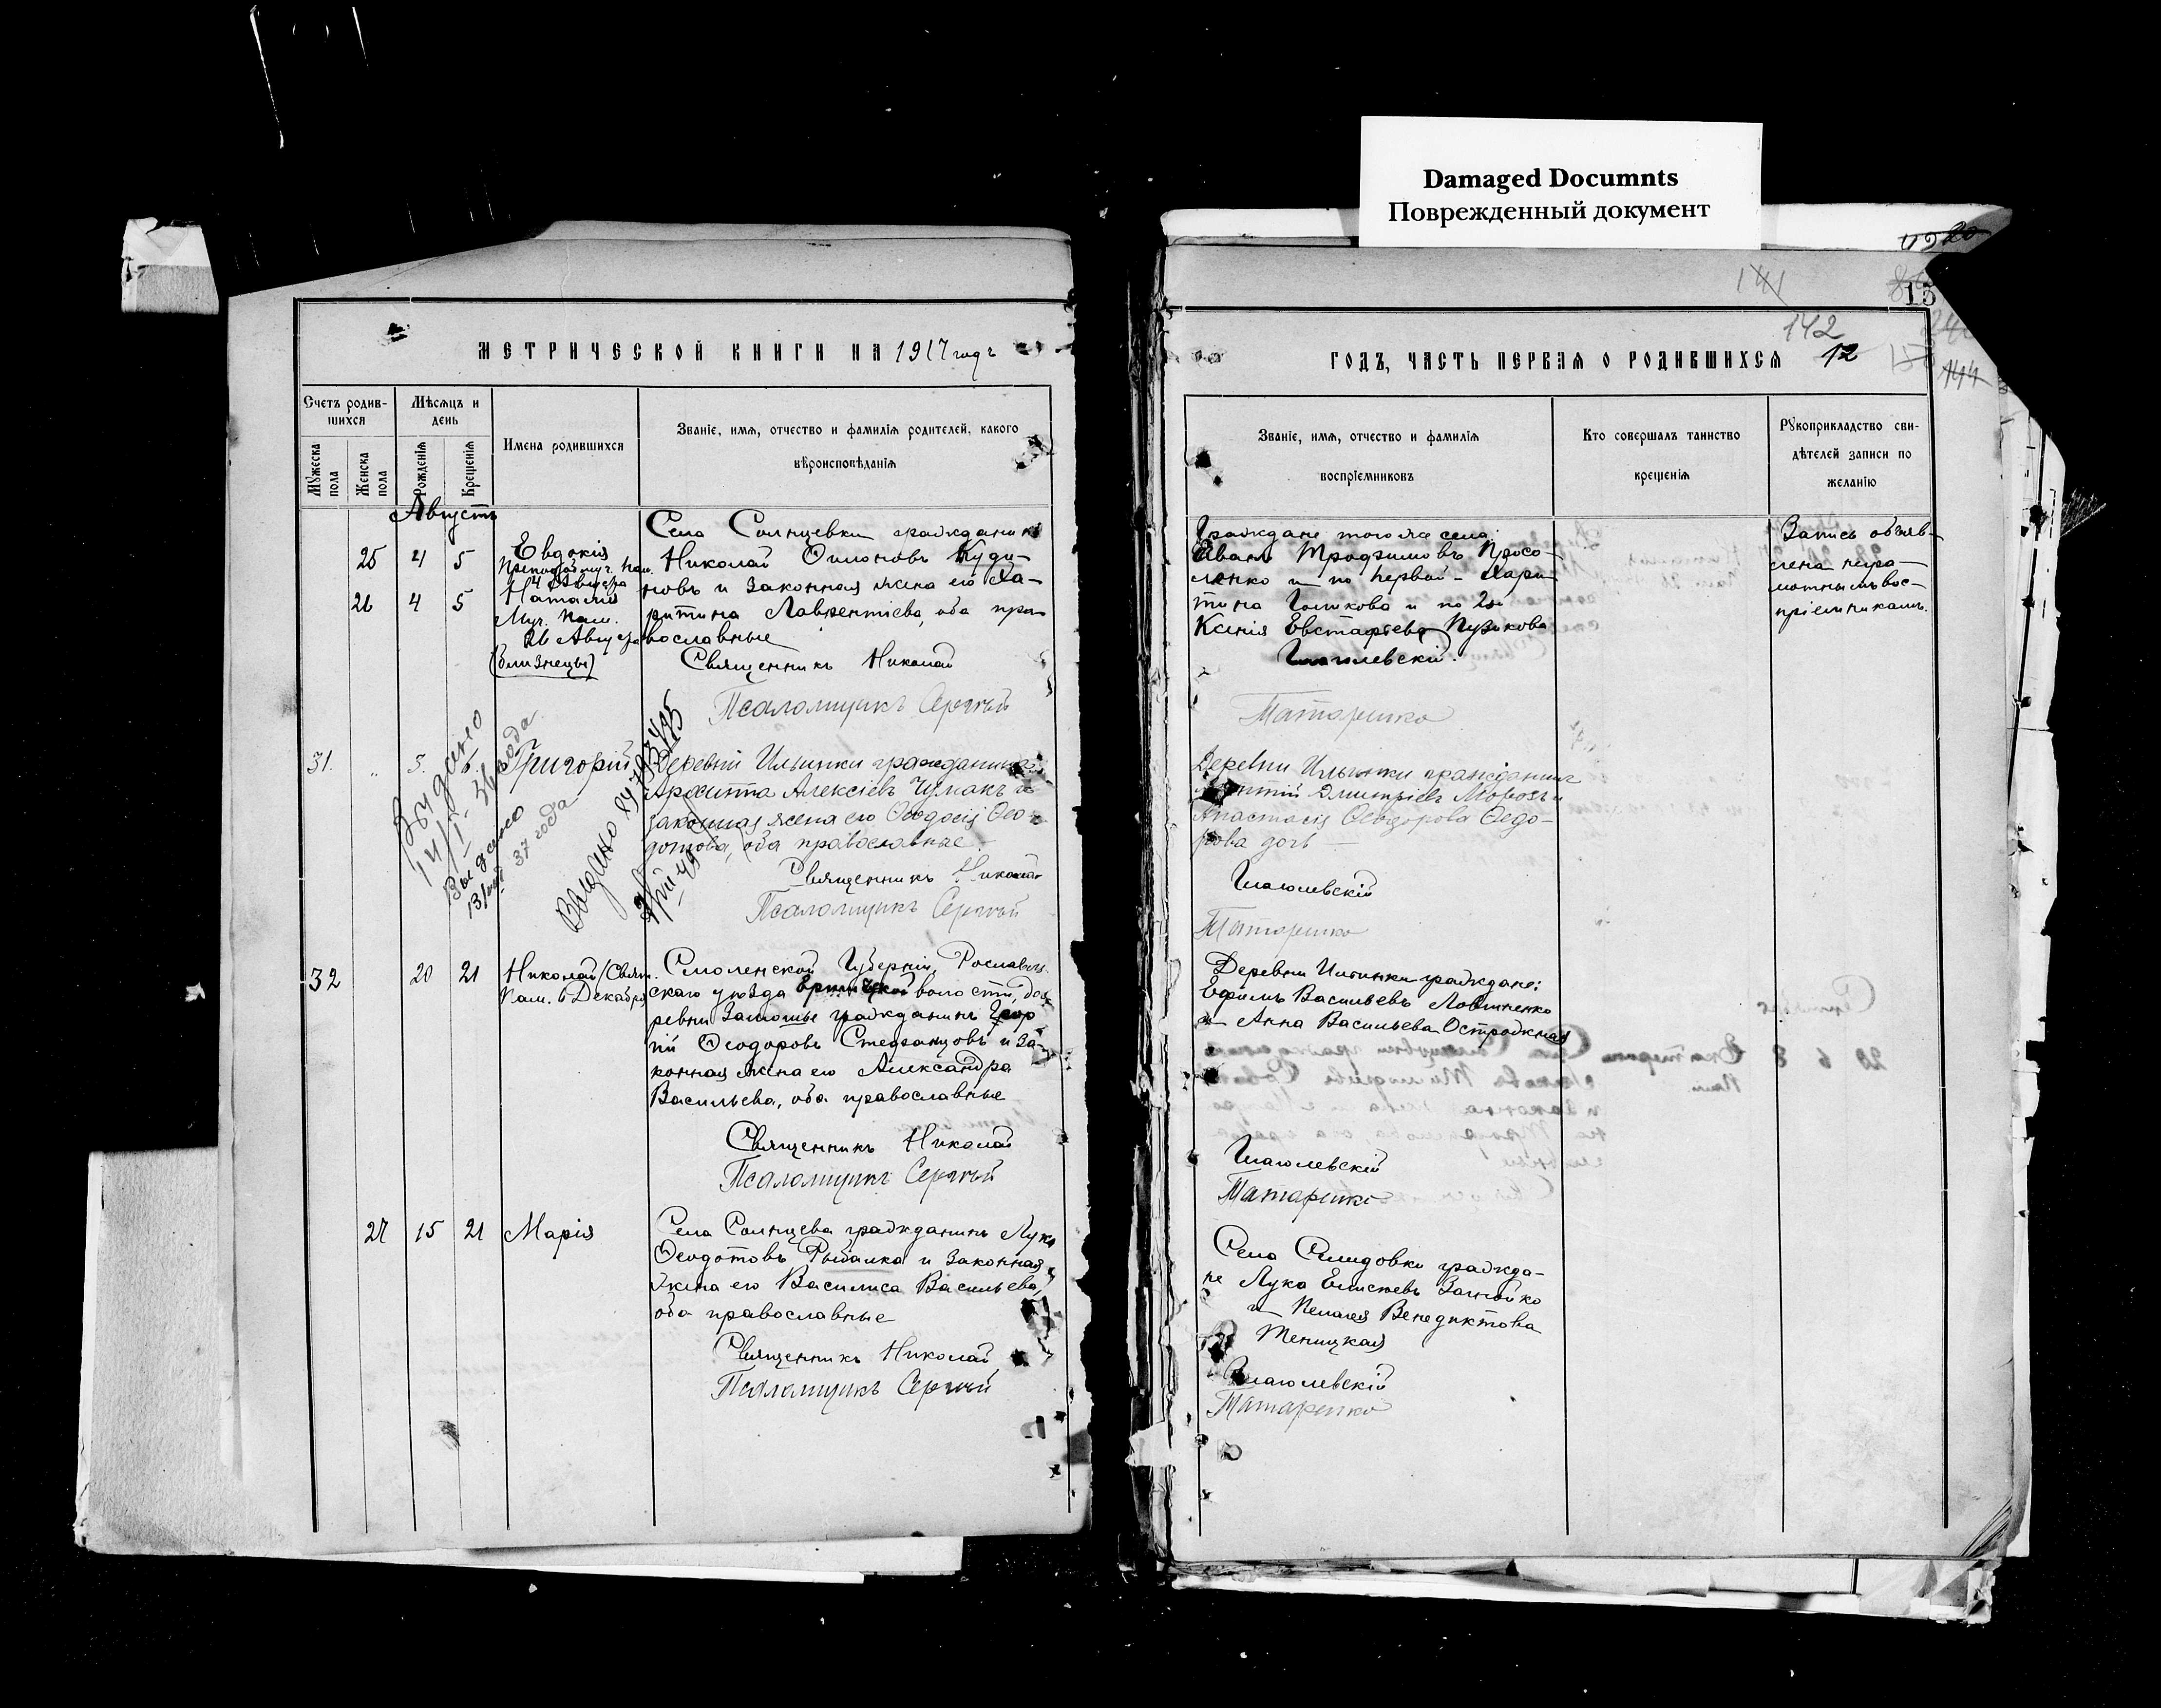 Damaged Documnts
Поврежденный документ
МЕТРИЧЕСКОЙ КНИГИ НА 1917 годъ
Счетъ родив-
шихся
Мужеска
пола
Женска
пола
Мѣсяцъ и
день
Рожденія
Крещенія
Имена родившихся
Званіе, имя, отчество и фамилія родителей, какого
вѣроисповѣданія
Августъ
25 4 5 Евдокія
4 Августа
26 4 5 Наталія
Муч. пам.
26 Августа
(близнецы)
Села Солнцевки гражданинъ
Николай
новъ и законная жена его Ха-
ритина Лаврентіева, оба пра-
вославные
Священникъ Николай
Псаломщикъ Сергѣй
31. " 5. 6. Григорій
Деревни Ильинки гражданинъ
Алексіевъ Чумакъ и
законная жена его Ѳеодосія Ѳео-
дотова, оба православные.
Священникъ Николай
Псаломщикъ Сергѣй
Выдано
14/I 36 года
Выдано
37 года
Выдано
32 20 21 Николай (Свят.
Пам. 6 Декабря)
Смоленской Губерніи, Рославль-
скаго уѣзда волости, де-
ревни гражданинъ Геор-
гій Ѳеодоровъ Степанцовъ и за-
конная жена его Александра
Васильева, оба православные
Священникъ Николай
Псаломщикъ Сергѣй
27 15 21 Марія
Села Солнцева гражданинъ Лука
Ѳеодотовъ Рыбалка и законная
жена его Василиса Васильева,
оба православные
Священникъ Николай
Псаломщикъ Сергѣй
141
15
142
144
ГОДЪ, ЧАСТЬ ПЕРВАЯ О РОДИВШИХСЯ 12
Званіе, имя, отчество и фамилія
воспріемниковъ
Кто совершалъ таинство
крещенія
Рукоприкладство сви-
дѣтелей записи по
желанію
Граждане того же села:
Иванъ Трофимовъ Просо-
ленко и по первой - Хари-
тина Голикова и по 2й
Ксенія Евстафьева Пузикова
Глаголевскій.
Татаренко
Запись объяв-
лена негра-
мотнымъ вос-
пріемникамъ.
Деревни Ильинки гражданинъ
Дмитріевъ Морозъ и
Анастасія Ѳеодорова Ѳедо-
рова дочь
Глаголевскій
Татаренко
Деревни Ильинки граждане:
Ефимъ Васильевъ
и Анна Васильева Острожная
Глаголевскій
Татаренко
Села Селидовки гражда-
не Лука
и Пелагея Венедиктова
Теницкая
Глаголевскій
Татаренко